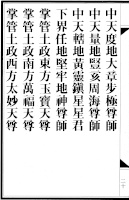 中天度地大章步極尊師
中天量地豎亥周海尊師
中天轄地黃靈鎭星星君
下界任地堅牢地神尊師
掌管土政東方玉寶天尊
掌管土政南方萬福天尊
掌管土政西方太妙天尊